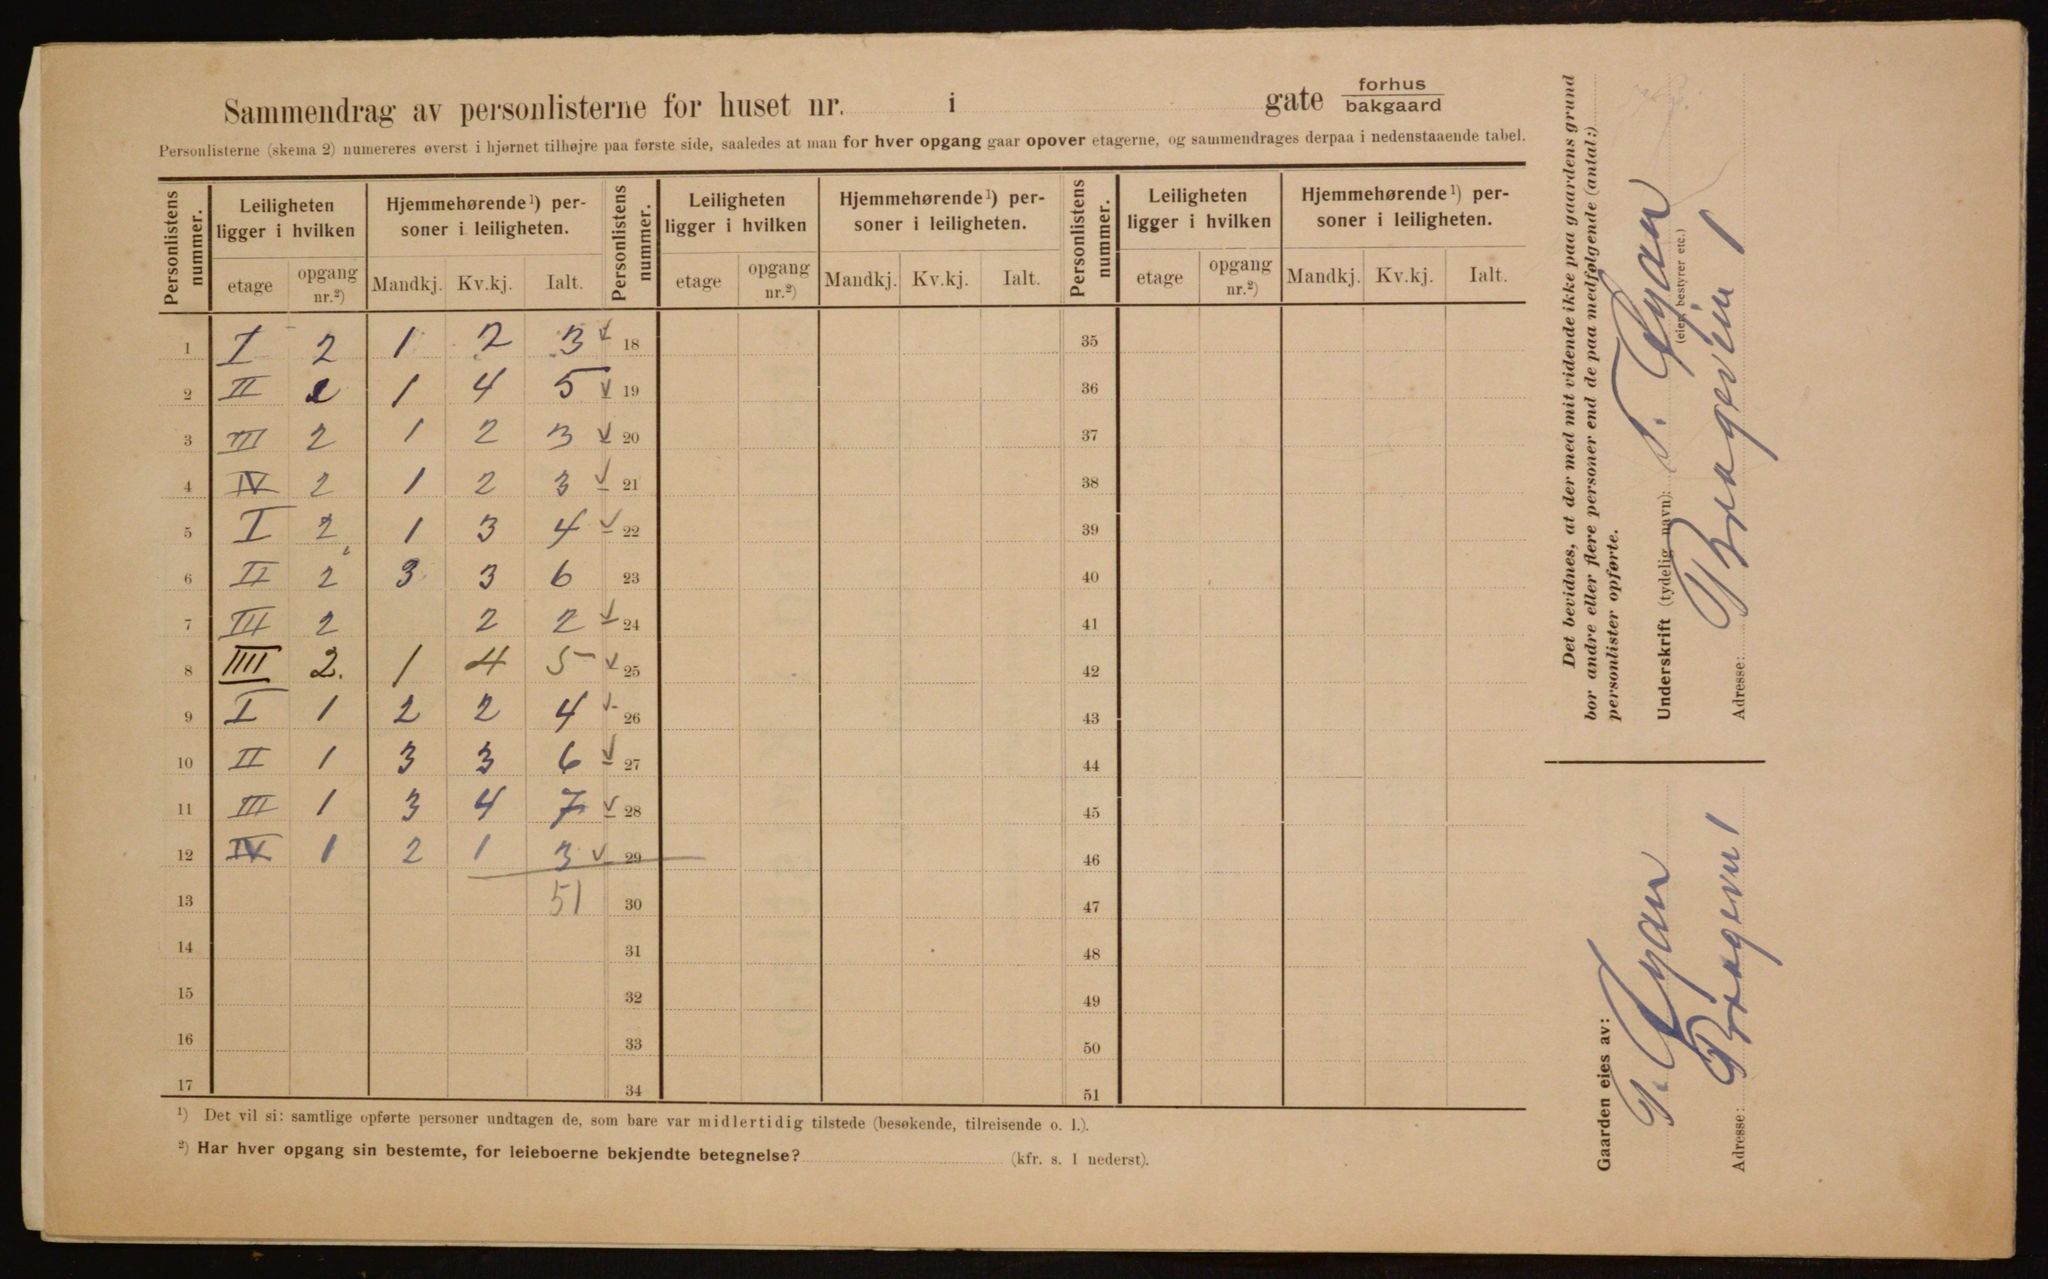 Sammendrag av personlisterne for huset nr. i gate forhus bakgaard
Personlisterne (skema 2) numereres øverst i hjørnet tilhøjre paa første side, saaledes at man for hver opgang gaar opover etagerne, og sammendrages derpaa i nedenstaaende tabel.
Personlistens nummer. Leiligheten ligger i hvilken Hjemmehørende ¹) personer i leiligheten. Personlistens nummer. Leiligheten ligger i hvilken Hjemmehørende ¹) personer i leiligheten. Personlistens nummer. Leiligheten ligger i hvilken Hjemmehørende ¹) personer i leiligheten.
etage opgang nr.²) Mandkj. Kv.kj. Ialt. etage opgang nr.²) Mandkj. Kv.kj. Ialt. etage opgang nr.²) Mandkj. Kv.kj. Ialt.
1 I 2 1 2 3 18 35
2 II 2 1 4 5 19 36
3 III 2 1 2 3 20 37
4 IV 2 1 2 3 21 38
5 I 2 1 3 4 22 39
6 II 2 3 3 6 23 40
7 III 2 2 2 24 41
8 IIII 2. 1 4 5 25 42
9 I 1 2 2 4 26 43
10 II 1 3 3 6 27 44
11 III 1 3 4 7 28 45
12 IV 1 2 1 3 29 46
13 51 30 47
14 31 48
15 32 49
16 33 50
17 34 51
¹) Det vil si: samtlige opførte personer undtagen de, som bare var midlertidig tilstede (besøkende, tilreisende o. l.).
²) Har hver opgang sin bestemte, for leieboerne bekjendte betegnelse? (kfr. s. 1 nederst).
Det bevidnes, at der med mit vidende ikke paa gaardens grund
bor andre eller flere personer end de paa medfølgende (antal:)
personlister opførte.
Underskrift (tydelig navn):
(eier, bestyrer etc.)
Adresse: 1
Gaarden eies av:
Adresse: 1